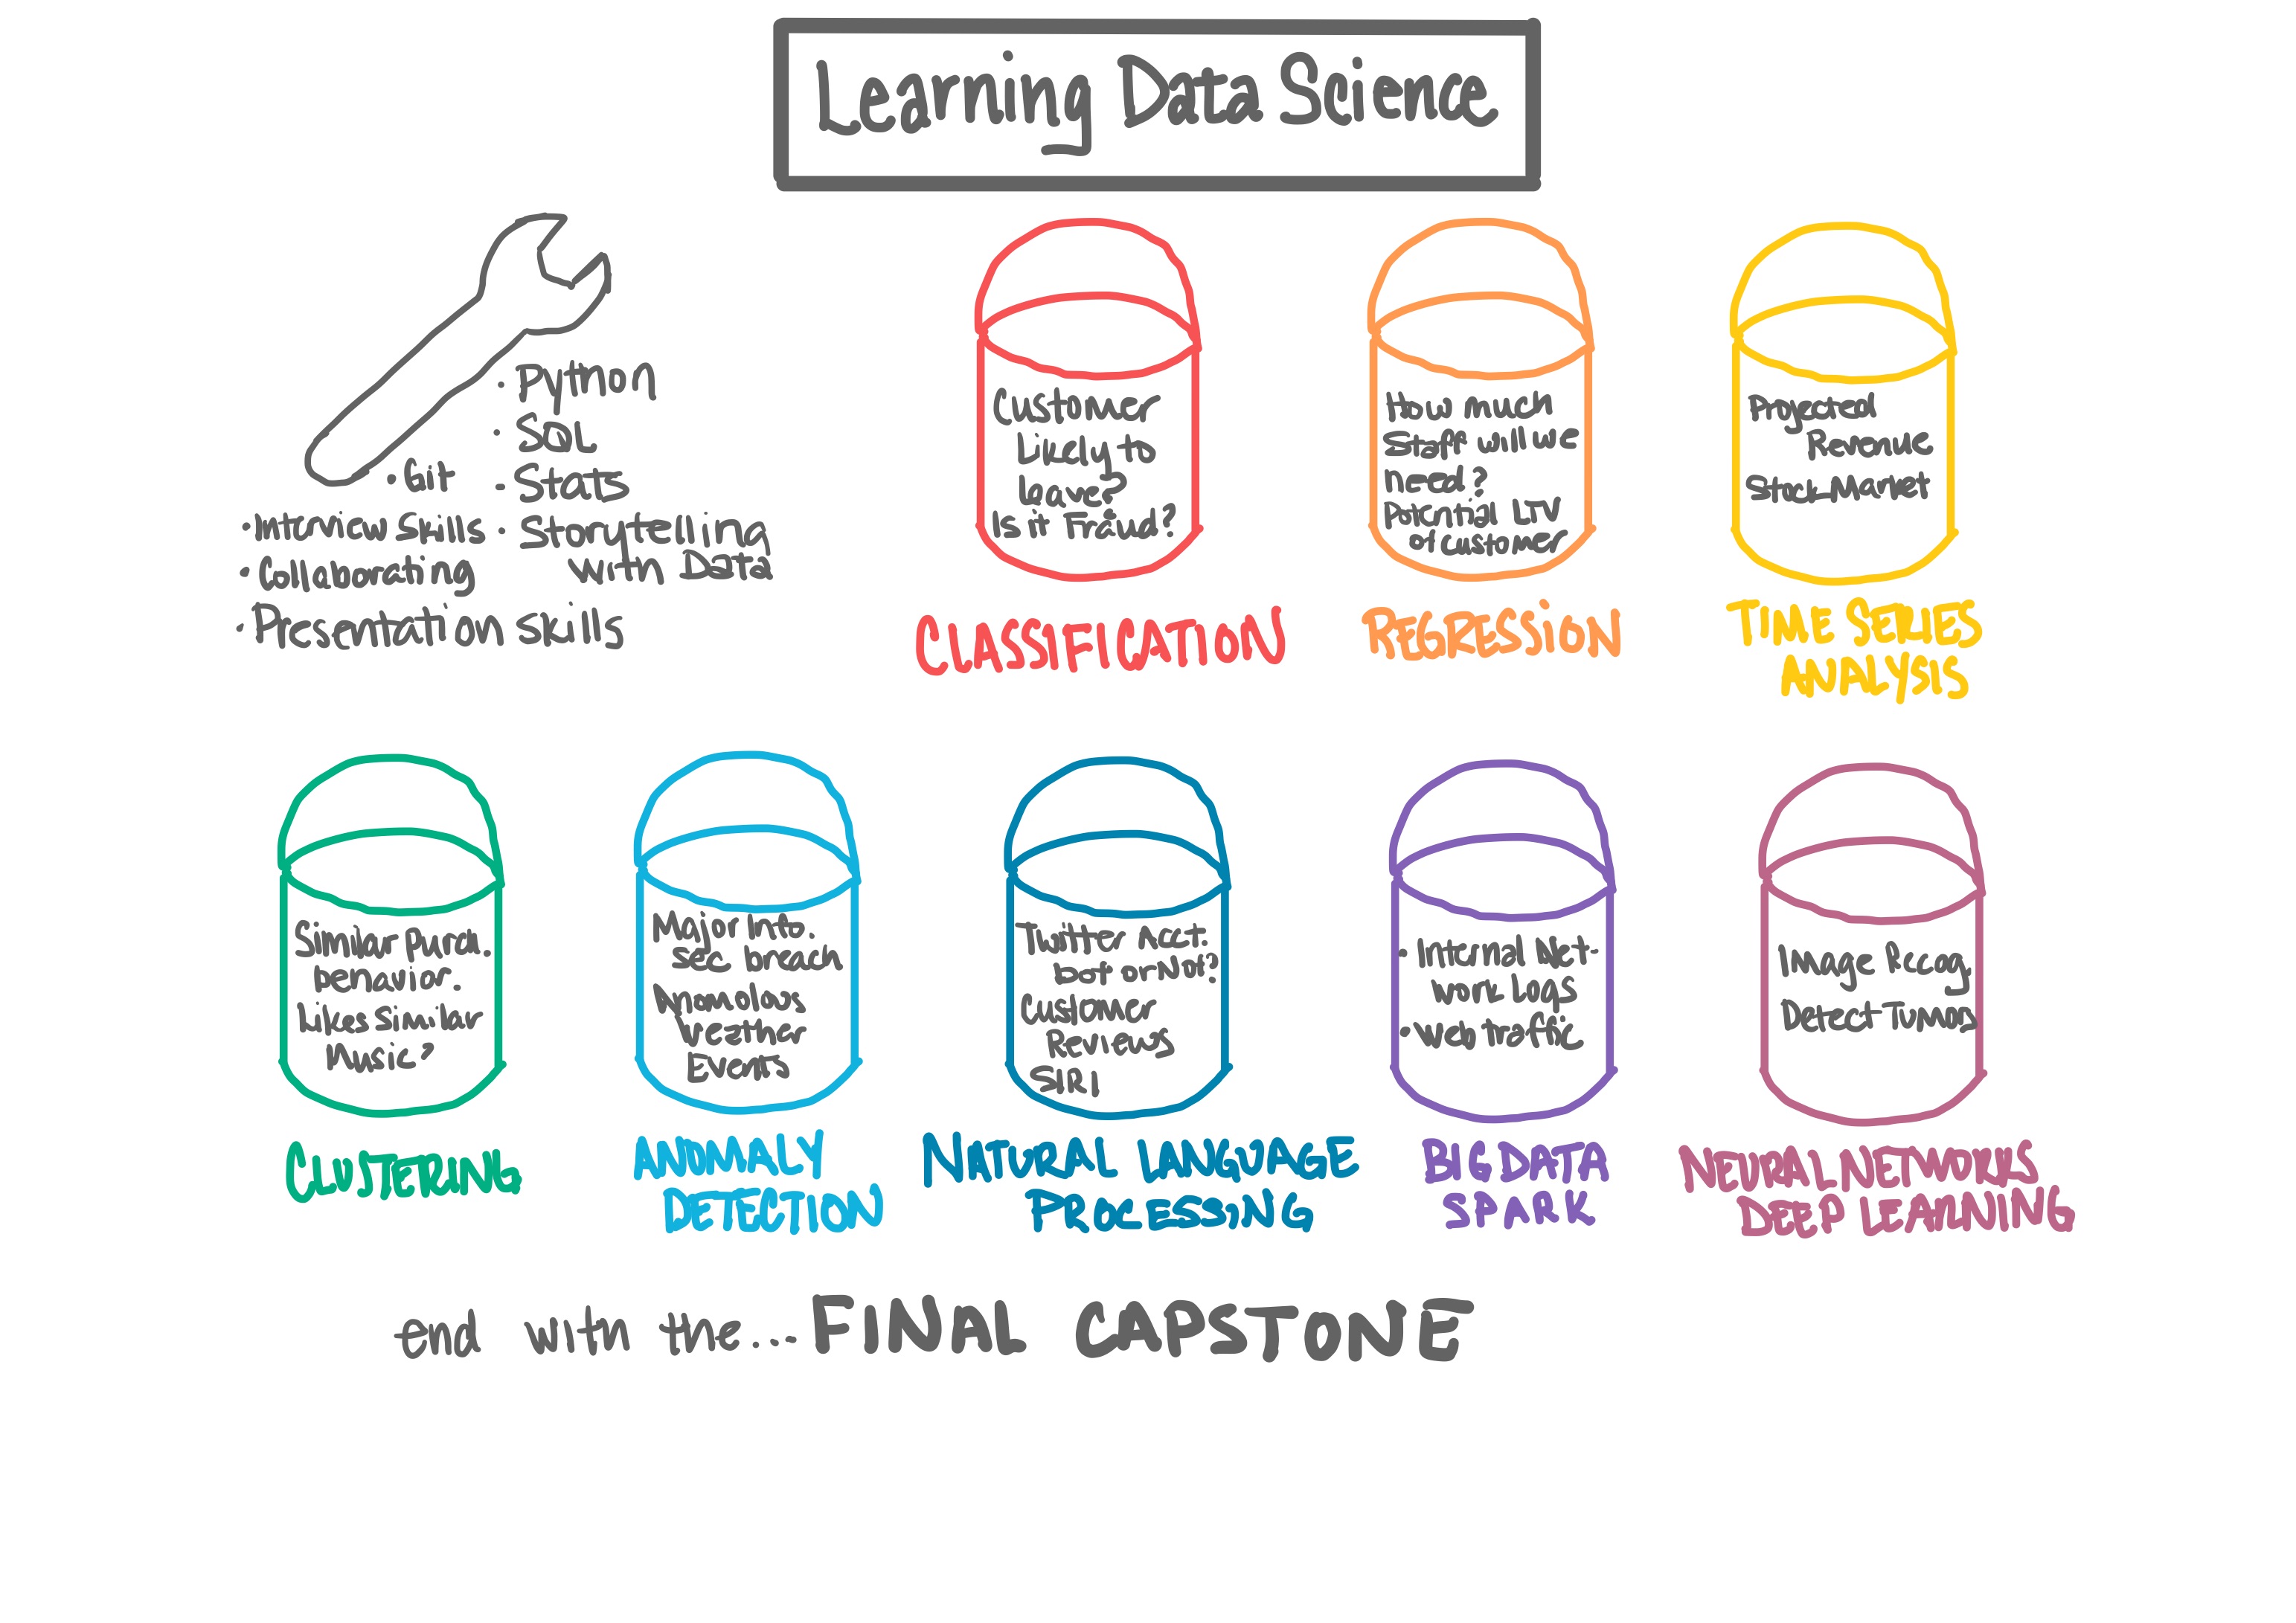 Learning Data Science
· Python
· SQL
· Git
· Stats
· Interview Skills
· Storytelling
with Data
· Collaborating
· Presentation skills
Customer
Likely to
Leave?
Is it Fraud?
CLASSIFICATION
How much
Staff will we
need?
Potential LTV
of customer
REGRESSION
Projected
Revenue
Stock Market
TIME SERIES
ANALYSIS
Similar purch.
behavior.
Likes Similar
Music?
CLUSTERING
Major Info.
Sec breach
Anomolous
Weather
Events
ANOMALY
DETECTION
Twitter Acct.
bot or Not?
Customer
Reviews
SIRI
NATURAL LANGUAGE
PROCESSING
· Internal Net-
work Logs
· Web traffic
BIG DATA
SPARK
Image Recog.
Detect Tumors
NEURAL NETWORKS
DEEP LEARNING
end with the... FINAL CAPSTONE